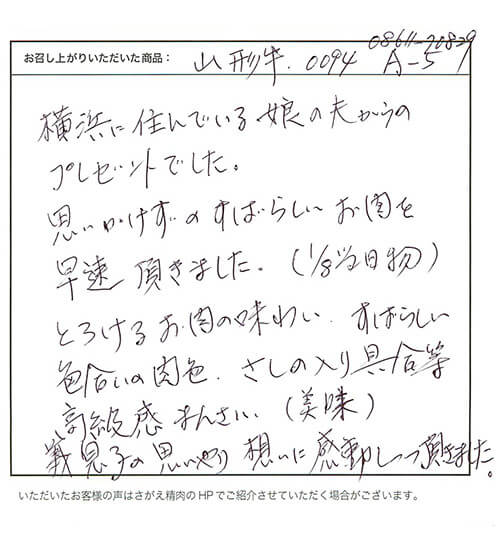 08611-70829
お召し上がりいただいた商品： 山形牛. 0094 A-5
横浜に住んでいる娘の夫からの
プレゼントでした。
思いかけずのすばらしいお肉を
早速頂きました。(1/8当日物)
とろけるお肉の味わい. すばらしい
色合いの肉色. さしの入り具合等
高級感まんさい. (美味)
義息子の思いやり想いに感動しつつ頂きました。
いただいたお客様の声はさがえ精肉のHPでご紹介させていただく場合がございます。